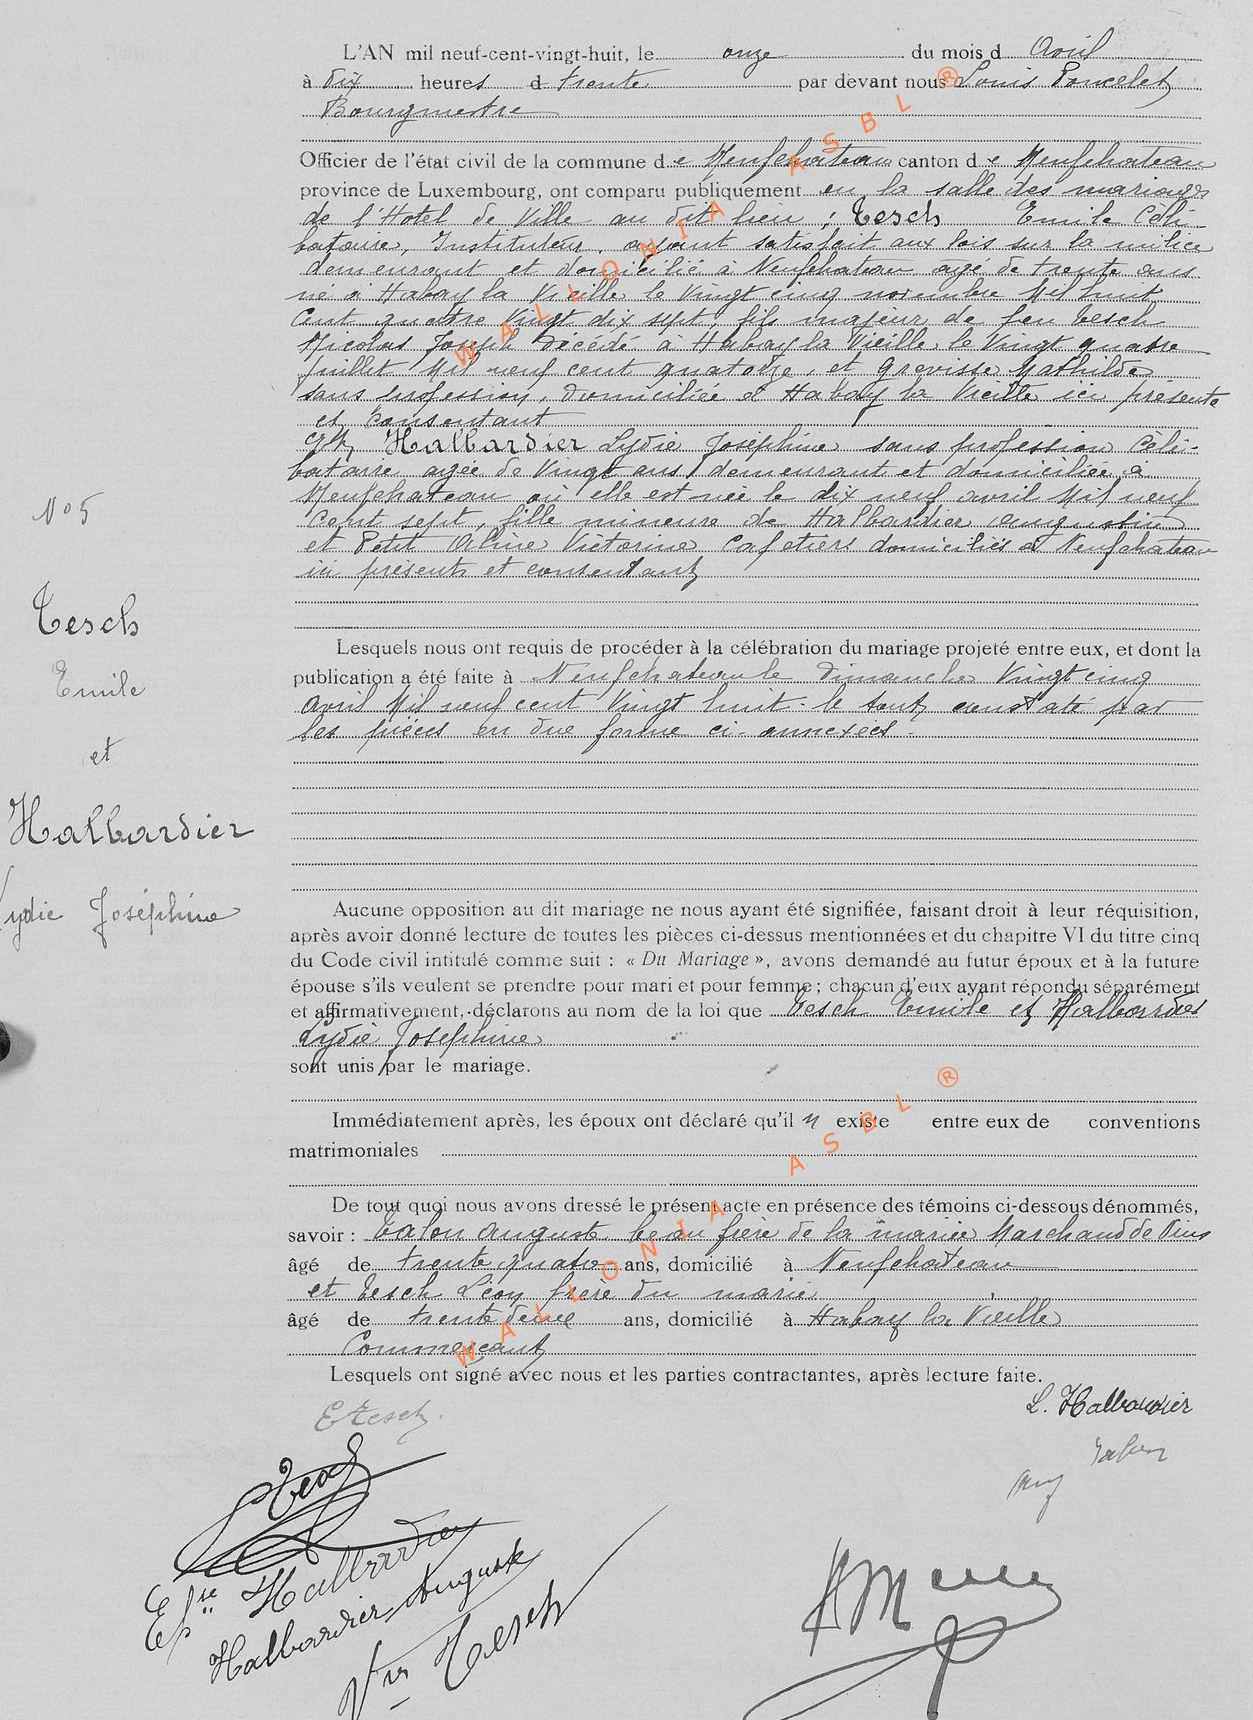 L'AN mil neuf-cent-vingt-huit, le onze du mois d Avril
à dix heures d trente par devant nous Louis Poncelet
Bourgmestre
Officier de l'état civil de la commune de Neufchateau canton de Neufchateau
province de Luxembourg, ont comparu publiquement en la salle des mariages
de l'Hotel de Ville au dit lieu ; Tesch Emile Céli-
bataire, Instituteur, ayant satisfait aux lois sur la milice
demeurant et domicilié à Neufchateau agé de trente ans
né à Habay la Vieille le Vingt cinq novembre Mil huit
Cent quatre Vingt dix sept, fils majeur de feu Tesch
Nicolas Joseph décédé à Habay la Vieille le Vingt quatre
juillet Mil neuf cent quatorze, et Grevisse Mathilde
sans profession, domiciliée à Habay la Vieille ici présente
et consentant
Et Halbardier Lydie Joséphine sans profession Céli-
bataire agée de Vingt ans demeurant et domiciliée à
Neufchateau où elle est née le dix neuf avril Mil neuf
Cent sept, fille mineure de Halbardier Augustin
et Petit Aline Victorine Cafetiers domiciliés à Neufchateau
ici présents et consentant
N° 5
Tesch
Emile
et
Halbardier
Lydie Joséphine
Lesquels nous ont requis de procéder à la célébration du mariage projeté entre eux, et dont la
publication a été faite à Neufchateau le Dimanche Vingt cinq
Avril Mil neuf cent Vingt huit - le tout constaté par
les pièces en due forme ci-annexées -
Aucune opposition au dit mariage ne nous ayant été signifiée, faisant droit à leur réquisition,
après avoir donné lecture de toutes les pièces ci-dessus mentionnées et du chapitre VI du titre cinq
du Code civil intitulé comme suit : « Du Mariage », avons demandé au futur époux et à la future
épouse s'ils veulent se prendre pour mari et pour femme ; chacun d'eux ayant répondu séparément
et affirmativement, déclarons au nom de la loi que Tesch Emile et Halbardier
Lydie Josephine
sont unis par le mariage.
Immédiatement après, les époux ont déclaré qu'il n existe entre eux de conventions
matrimoniales
De tout quoi nous avons dressé le présent acte en présence des témoins ci-dessous dénommés,
savoir : Talon Auguste beau frère de la mariée Marchand de Vins
âgé de trente quatre ans, domicilié à Neufchateau
et Tesch Léon frère du marié
âgé de trente deux ans, domicilié à Habay la Vieille
Commerçant
Lesquels ont signé avec nous et les parties contractantes, après lecture faite.
E Tesch.
L. Halbardier
Talon
Aug
Tesch
Epse Halbardier
Halbardier Auguste
Vve Tesch
WALLONIA ASBL ®
WALLONIA ASBL ®